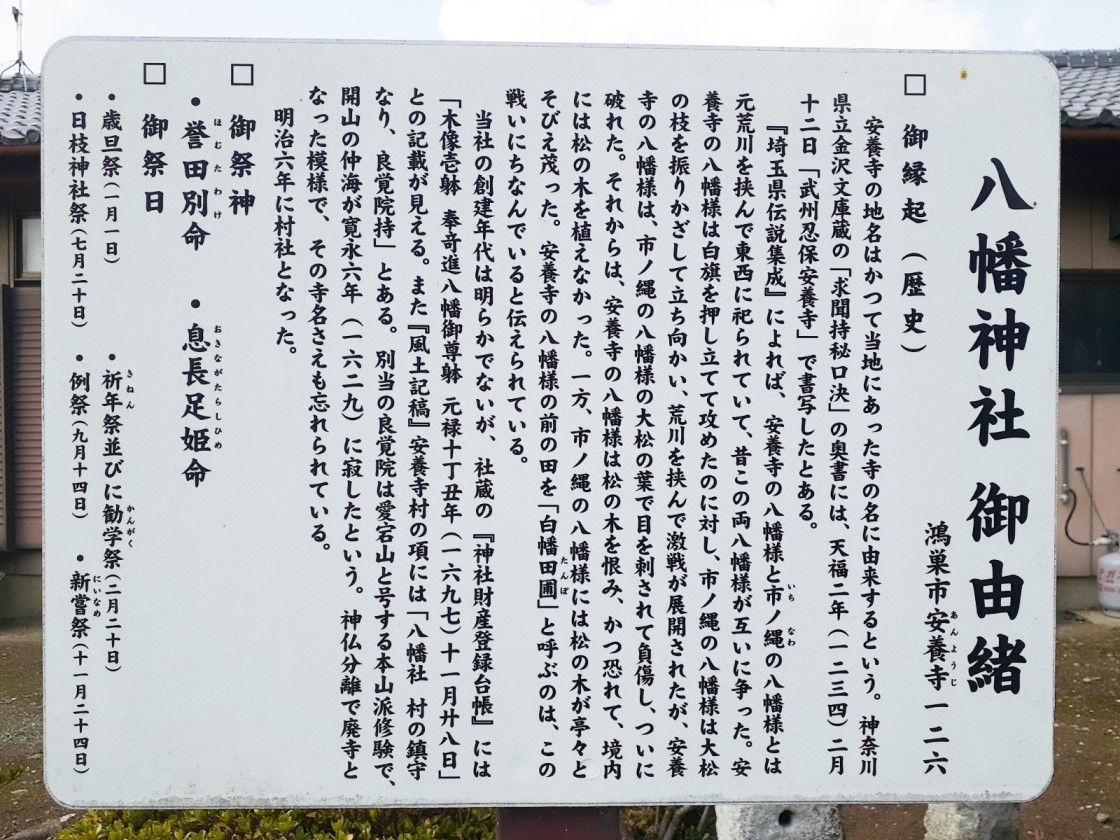 八幡神社 御由緒
鴻巣市安養寺一二六
あんようじ
□ 御縁起(歴史)
安養寺の地名はかつて当地にあった寺の名に由来するという。神奈川
県立金沢文庫蔵の「求聞持秘口決」の奥書には、天福二年(一二三四)二月
十二日「武州忍保安養寺」で書写したとある。
『埼玉県伝説集成』によれば、安養寺の八幡様と市ノ縄の八幡様とは
いち なわ
元荒川を挟んで東西に祀られていて、昔この両八幡様が互いに争った。安
養寺の八幡様は白旗を押し立てて攻めたのに対し、市ノ縄の八幡様は大松
の枝を振りかざして立ち向かい、荒川を挟んで激戦が展開されたが、安養
寺の八幡様は、市ノ縄の八幡様の大松の葉で目を刺されて負傷し、ついに
破れた。それからは、安養寺の八幡様は松の木を恨み、かつ恐れて、境内
には松の木を植えなかった。一方、市ノ縄の八幡様には松の木が亭々と
そびえ茂った。安養寺の八幡様の前の田を「白幡田圃」と呼ぶのは、この
たんぼ
戦いにちなんでいると伝えられている。
当社の創建年代は明らかでないが、社蔵の『神社財産登録台帳』には
「木像壱躰 奉奇進八幡御尊躰 元禄十丁丑年(一六九七)十一月廿八日」
との記載が見える。また『風土記稿』安養寺村の項には「八幡社 村の鎮守
なり、良覚院持」とある。別当の良覚院は愛宕山と号する本山派修験で、
開山の仲海が寛永六年(一六二九)に寂したという。神仏分離で廃寺と
なった模様で、その寺名さえも忘れられている。
明治六年に村社となった。
□ 御祭神
・誉田別命 ・息長足姫命
ほむたわけ おきながたらしひめ
□ 御祭日
・歳旦祭(一月一日) ・祈年祭並びに勧学祭(二月二十日)
きねん かんがく
・日枝神社祭(七月二十日) ・例祭(九月十四日) ・新嘗祭(十一月二十四日)
にいなめ